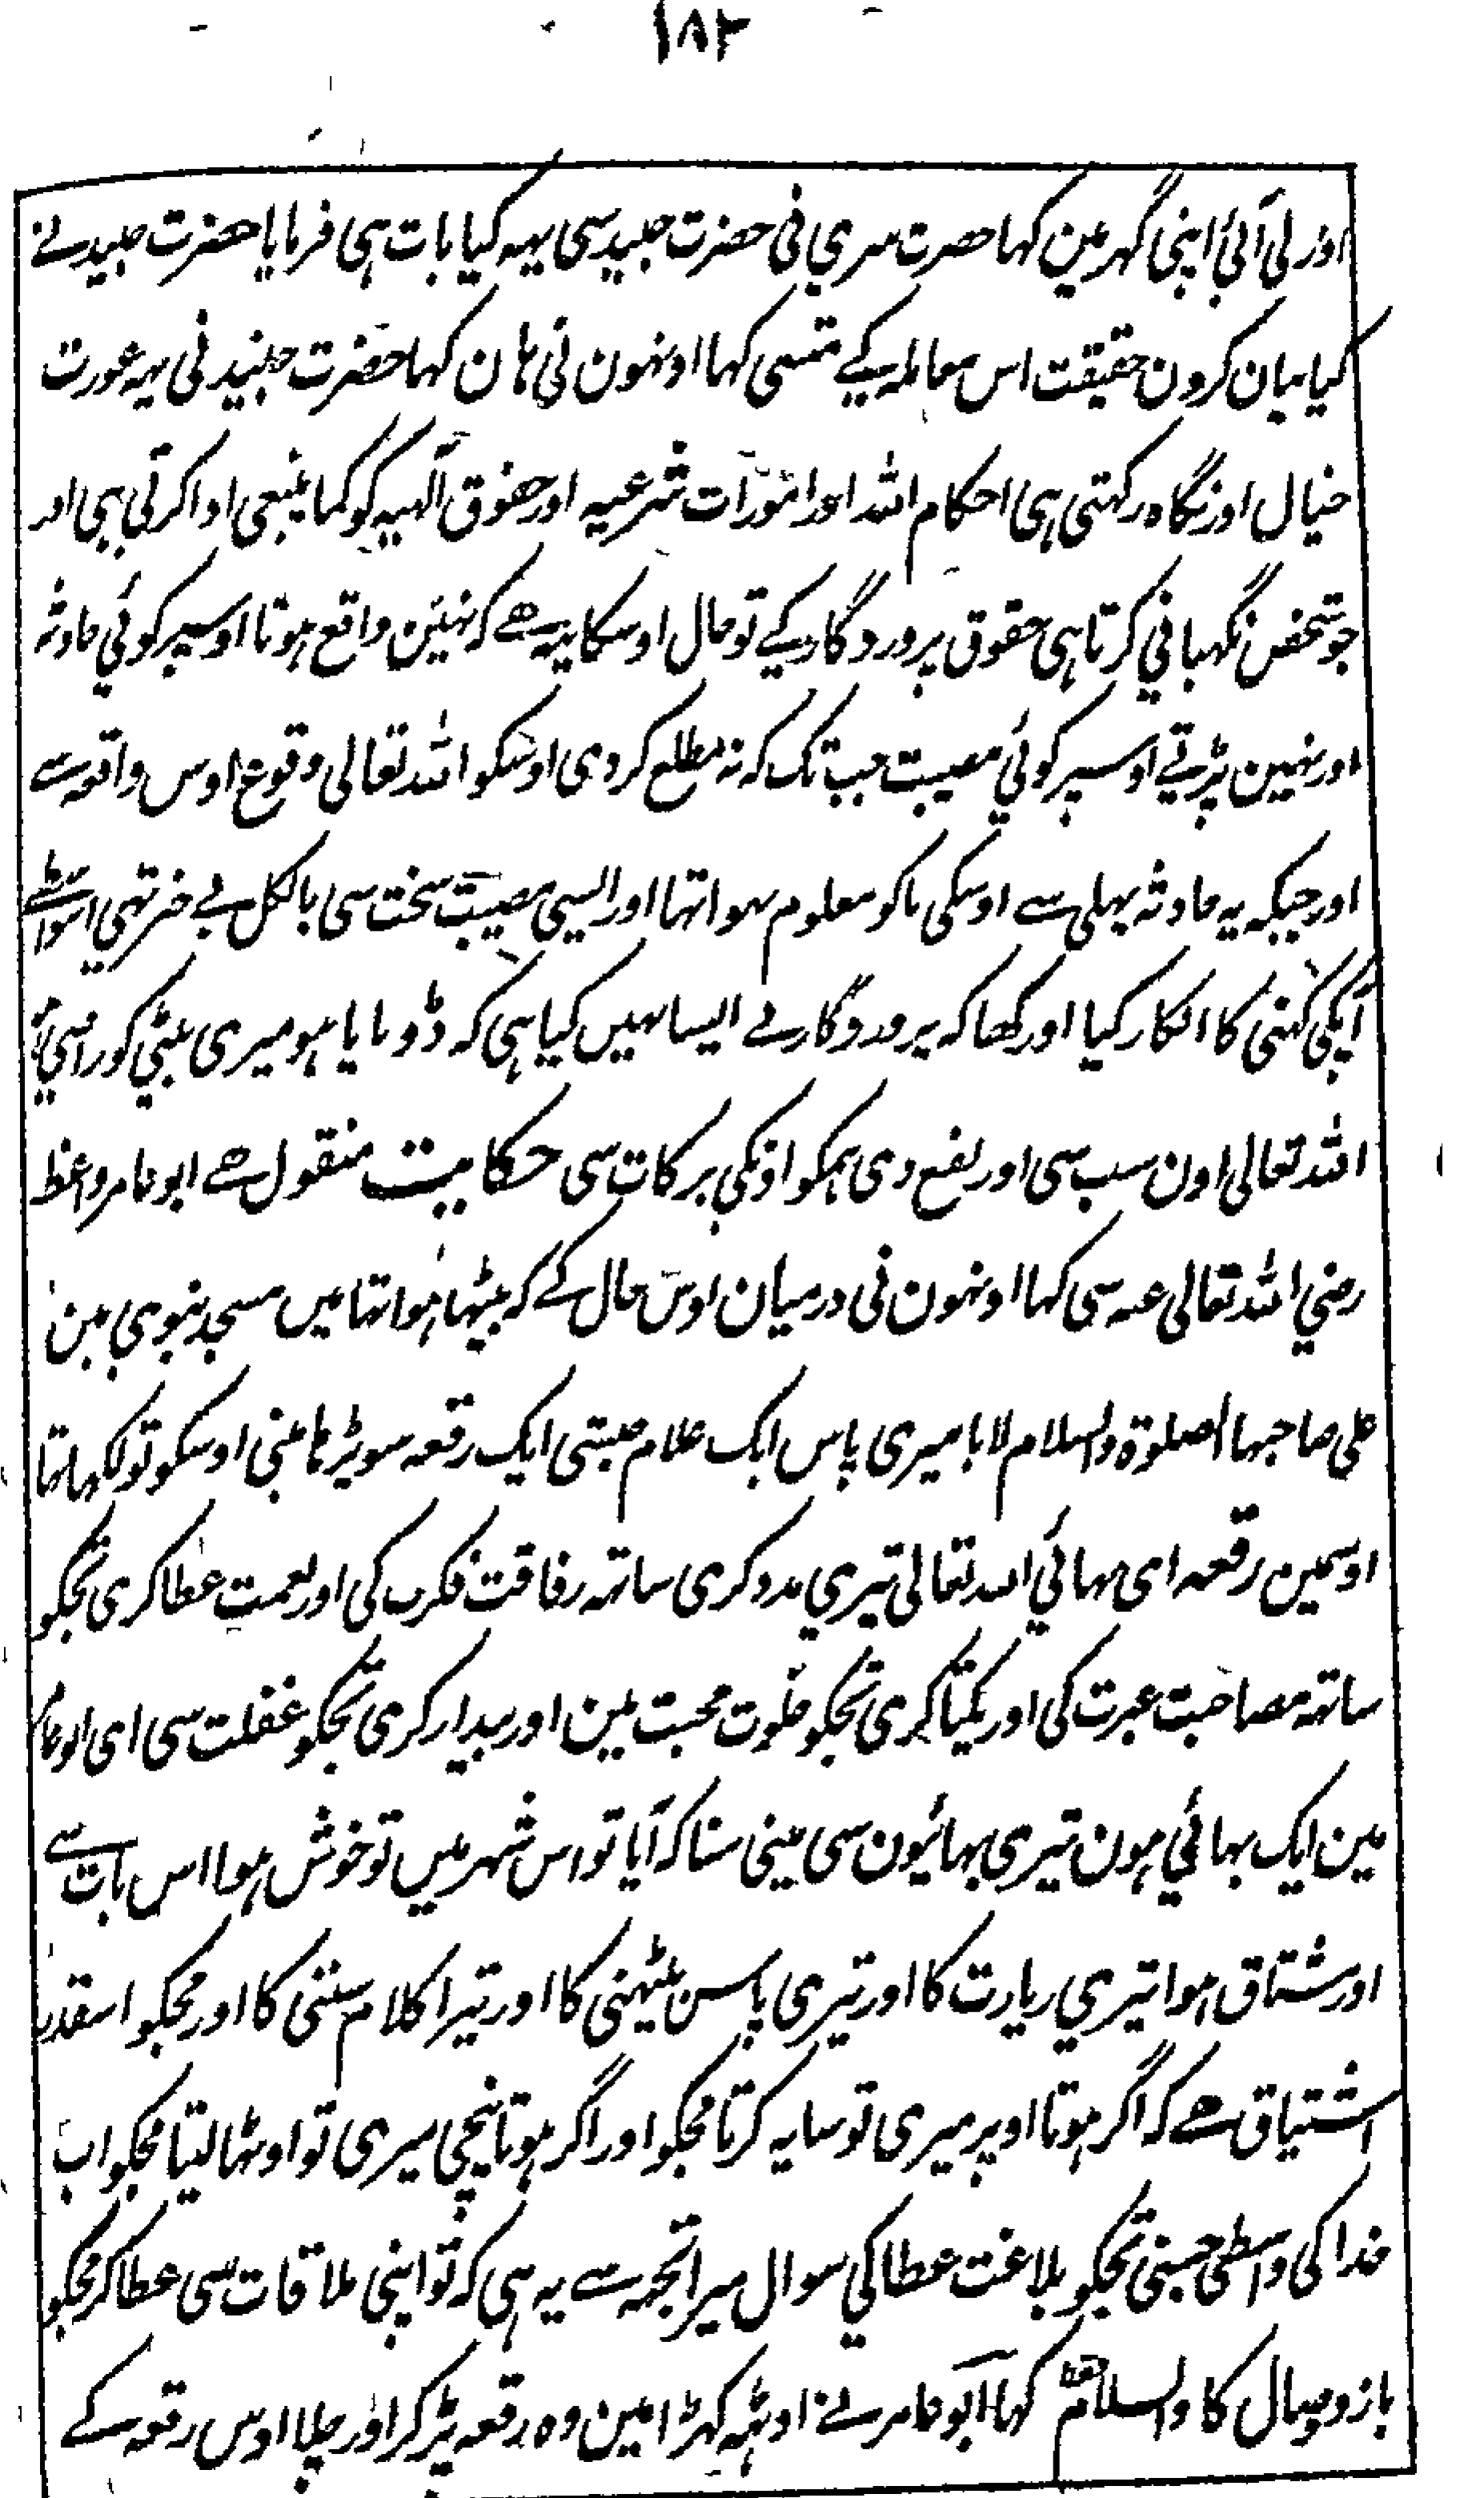 ١٨٢
اور لی آئی اپنی گہر مین کہا حضرت سری نی حضرت جنید سی یہہ کیا بات ہی فرمایا حضرت جنید نے
کیا بیان کرون حقیقت اس معاملہ کے تمسی کہا اونہون نی ہان کہا حضرت جنید نی یہہ عورت
خیال اور نگاہ رکہتی ہی احکام اللہ اور امورات شرعیہ اور حقوق الٰہیہ کو کما ینبغی ادا کرتی ہی اور
جو شخص نگہبانی کرتا ہی حقوق پروردگار کے تو حال اوسکا یہ ہے کہ نہین واقع ہوتا اوسپر کوئی حادثہ
اور نہین پڑتے اوسپر کوئی مصیبت جب تک کہ نہ مطلع کر دی اوسکو اللہ تعالی وقوع اوس واقعہ سے
اور جبکہ یہ حادثہ پہلی سے اوسکی ما کو معلوم ہوا تہا اور ایسی مصیبت سخت سی بالکل بے خبر تہی اسواسطے
آپکی کہنی کا انکار کیا اور کہا کہ پروردگار نے ایسا نہیں کیا ہی کہ ڈوبایا ہو میری بیٹی کو راضی ہو
اللہ تعالی اون سب سی اور نفع دی ہمکو اونکی برکات سی حکایت منقول ہے ابو عامر واعظ
رضی اللہ تعالی عنہ سی کہا اونہون نی درمیان اوس حال کے کہ بیٹہا ہوا تہا میں مسجد نبوی مین
علی صاحبہا الصلوة والسلام لایا میری پاس ایک غلام حبشی ایک رقعہ سو پڑہا مینی اوسکو تو لکہا تہا
اوسمین رقعہ ای بہائی اللہ تعالی تیری مدد کری ساتہ رفاقت فکر کی اور نعمت عطا کری تجکو
ساتہ مصاحبت عبرت کی اور یکتا کری تجکو خلوت محبت مین اور بیدار کری تجکو غفلت سی ای ابو عامر
مین ایک بہائی ہون تیری بہائیون سی مینی سنا کہ آیا تو اس شہر میں تو خوش ہوا اس بات سے
اور مشتاق ہوا تیری زیارت کا اور تیری پاس بیٹہنی کا اور تیرا کلام سننی کا اور مجکو اسقدر
اشتیاق ہے کہ اگر ہوتا اوپر میری تو سایہ کرتا مجکو اور اگر ہوتا نیچی میری تو اوٹہا لیتا مجکو اب
خدا کی واسطی جسنی تجکو بلاغت عطا کی سوال میرا تجہ سے یہ ہی کہ تو اپنی ملاقات سی عطا کر مجکو
بازو وصال کا والسلام کہا ابو عامر نے اوٹہہ کہڑا مین وہ رقعہ پڑ کر اور چلا اوس رقعہ کے